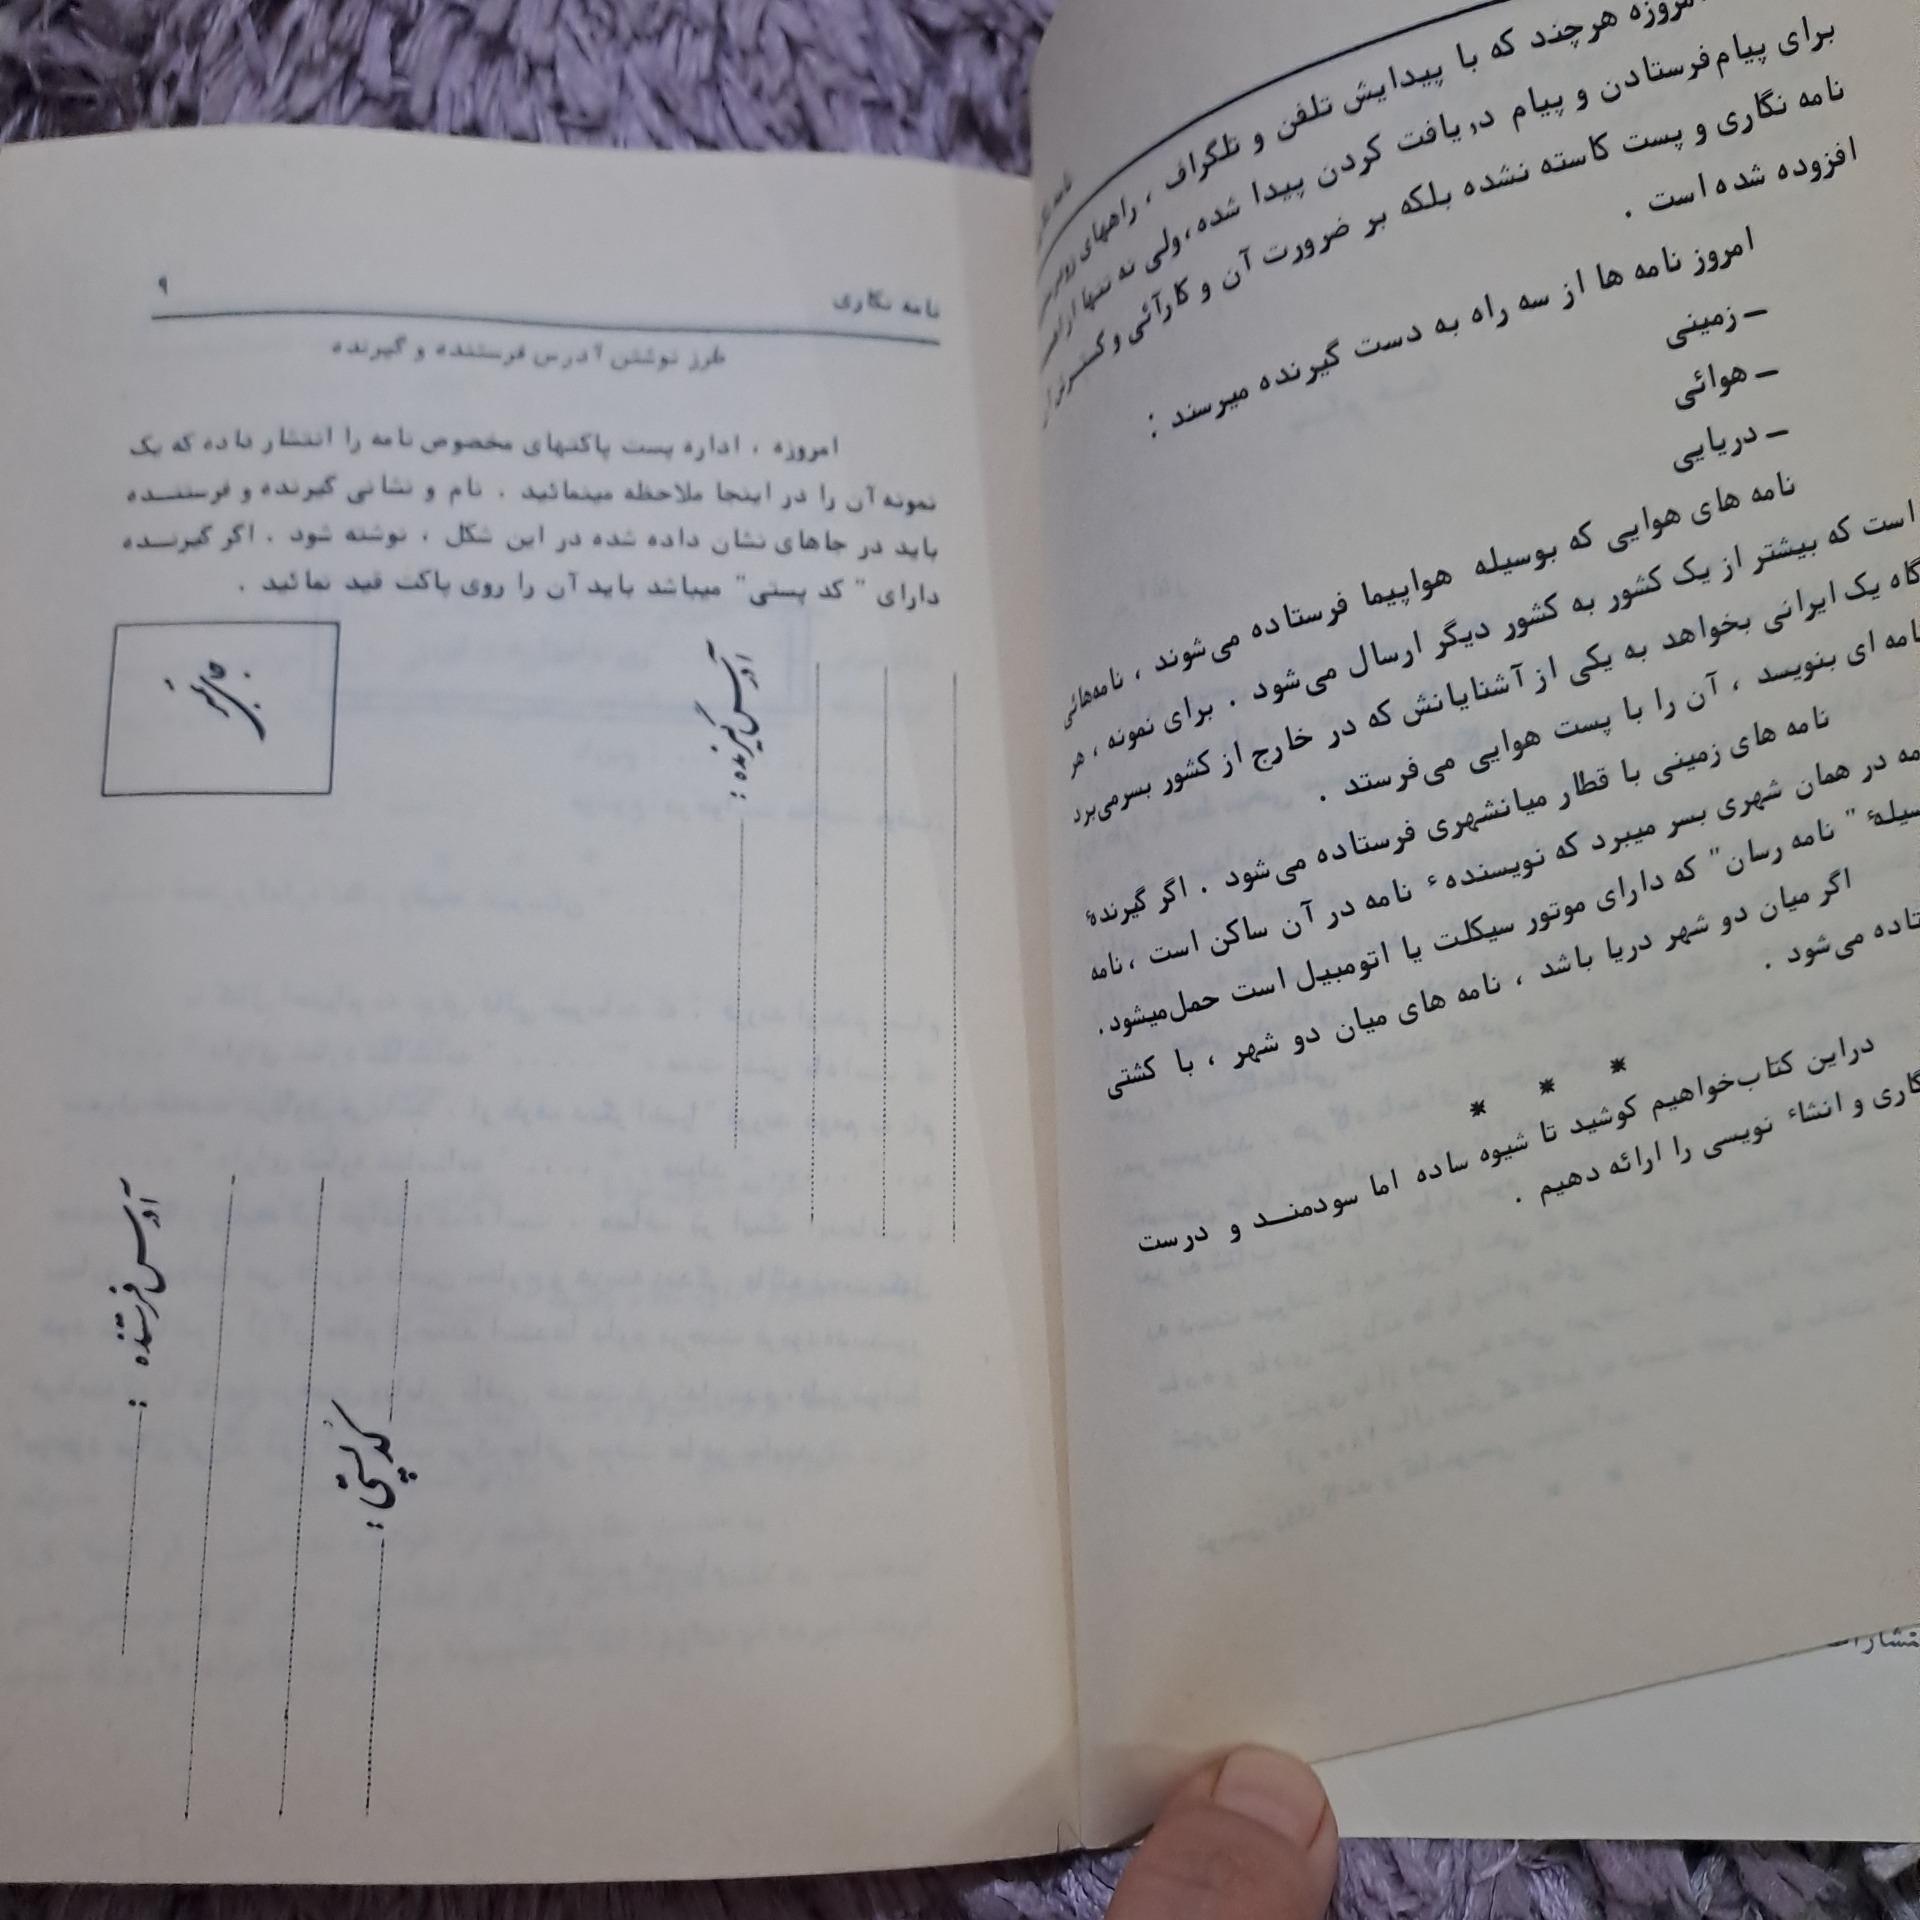 امروزه هرچند که با پیدایش تلفن و تلگراف ، راههای
برای پیام فرستادن و پیام دریافت کردن پیدا شده، ولی نه تنها از
نامه نگاری و پست کاسته نشده بلکه بر ضرورت آن و کارآئی و گسترش
افزوده شده است .
امروز نامه ها از سه راه به دست گیرنده میرسند :
ــ زمینی
ــ هوائی
ــ دریایی
نامه های هوایی که بوسیله هواپیما فرستاده می‌شوند ، نامه‌هائی
است که بیشتر از یک کشور به کشور دیگر ارسال می‌شود . برای نمونه ، هر
گاه یک ایرانی بخواهد به یکی از آشنایانش که در خارج از کشور بسر می‌برد
نامه ای بنویسد ، آن را با پست هوایی می‌فرستد .
نامه های زمینی با قطار میانشهری فرستاده می‌شود . اگر گیرندهٔ
مه در همان شهری بسر میبرد که نویسندهء نامه در آن ساکن است ، نامه
سیلهٔ " نامه رسان" که دارای موتور سیکلت یا اتومبیل است حمل میشود.
اگر میان دو شهر دریا باشد ، نامه های میان دو شهر ، با کشتی
تاده می‌شود .
* * *
دراین کتاب خواهیم کوشید تا شیوه ساده اما سودمنـد و درست
گاری و انشاء نویسی را ارائه دهیم .
نامه نگاری ۹
طرز نوشتن آدرس فرستنده و گیرنده
امروزه ، اداره پست پاکتهای مخصوص نامه را انتشار داده که یک
نمونه آن را در اینجا ملاحظه مینمائید . نام و نشانی گیرنده و فرستنـده
باید در جاهای نشان داده شده در این شکل ، نوشته شود . اگر گیرنـده
دارای " کد پستی" میباشد باید آن را روی پاکت قید نمائید .
آدرس گیرنده :
آدرس فرستنده :
کد پستی :